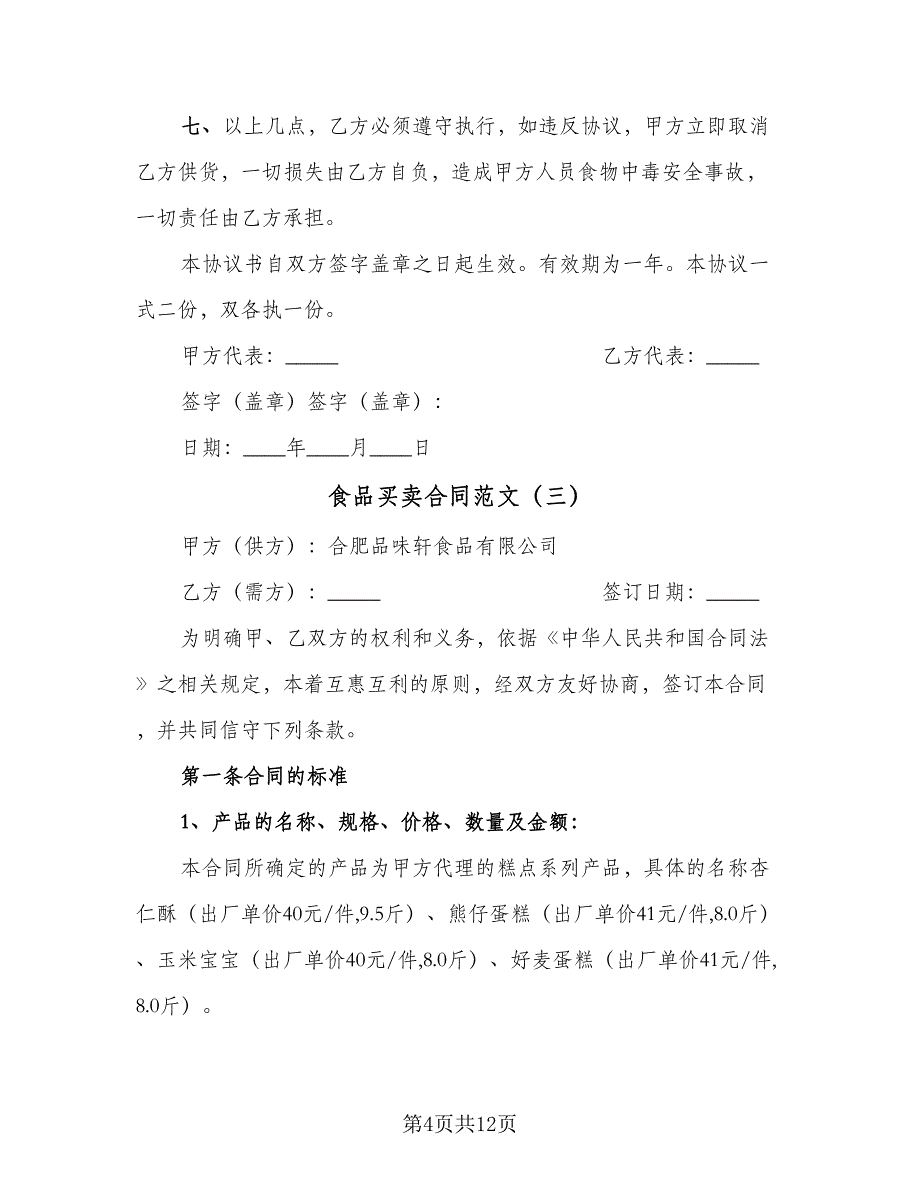 七、以上几点，乙方必须遵守执行，如违反协议，甲方立即取消
乙方供货，一切损失由乙方自负，造成甲方人员食物中毒安全事故，
一切责任由乙方承担。
本协议书自双方签字盖章之日起生效。有效期为一年。本协议一
式二份，双各执一份。
甲方代表：_____ 乙方代表：_____
签字（盖章）签字（盖章）：
日期：____年____月____日
食品买卖合同范文（三）
甲方（供方）：合肥品味轩食品有限公司
乙方（需方）：_____ 签订日期：_____
为明确甲、乙双方的权利和义务，依据《中华人民共和国合同法
》之相关规定，本着互惠互利的原则，经双方友好协商，签订本合同
，并共同信守下列条款。
第一条合同的标准
1、产品的名称、规格、价格、数量及金额：
本合同所确定的产品为甲方代理的糕点系列产品，具体的名称杏
仁酥（出厂单价40元/件,9.5斤）、熊仔蛋糕（出厂单价41元/件,8.0斤）
、玉米宝宝（出厂单价40元/件,8.0斤）、好麦蛋糕（出厂单价41元/件,
8.0斤）。
第4页共12页